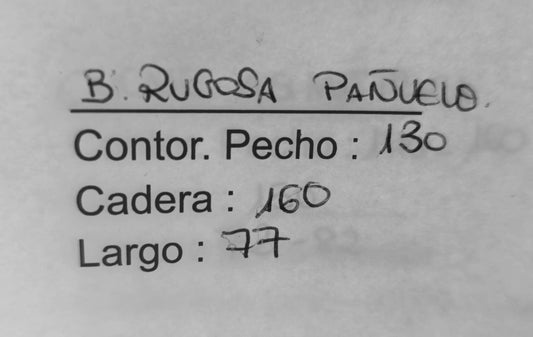 B. RUGOSA PAÑUELO.
Contor. Pecho : 130
Cadera : 160
Largo : 77